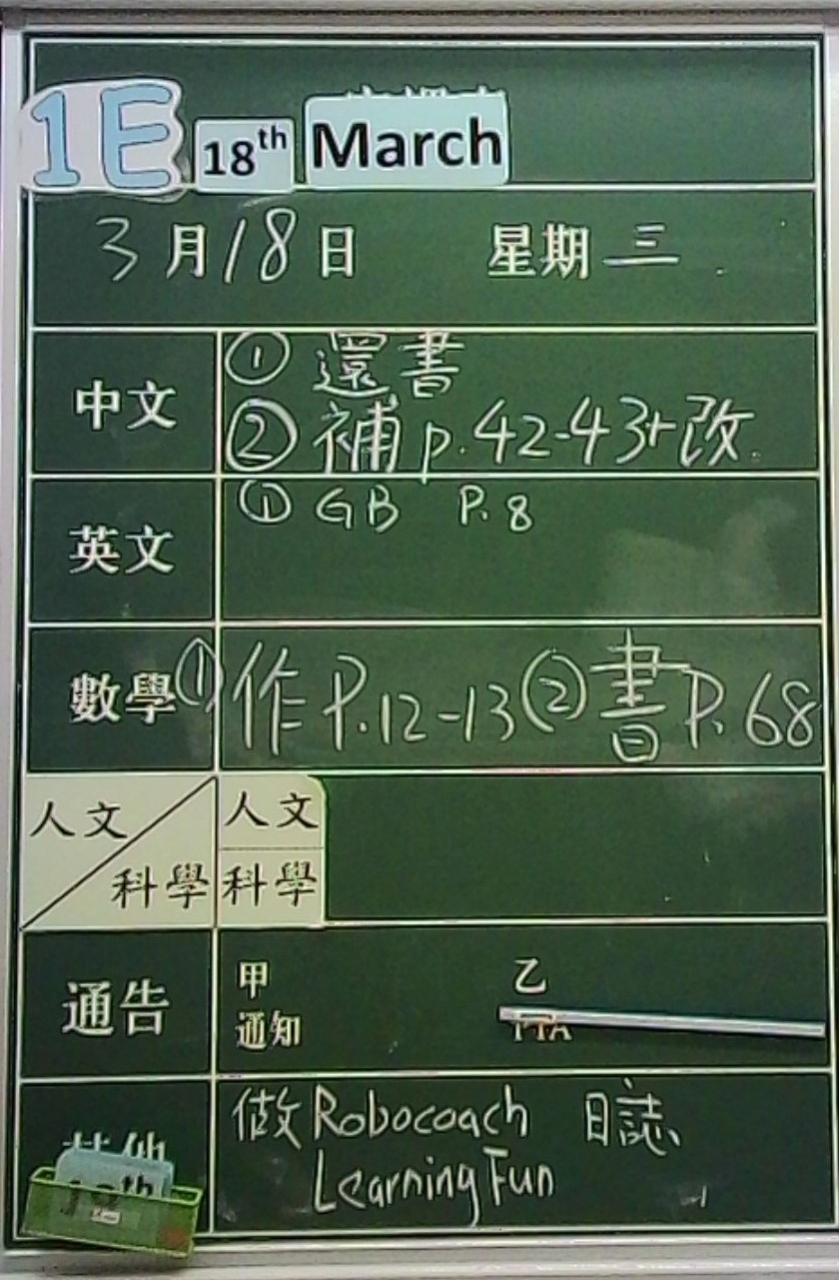 1E 18th March
3月18日 星期三
中文 ① 還書
② 補 p.42-43+改
英文 ① GB P.8
數學 ① 作 P.12-13 ② 書 P.68
人文 人文
科學 科學
通告 甲 乙
通知 PTA
其他 做 Robocoach 日誌
Learning Fun